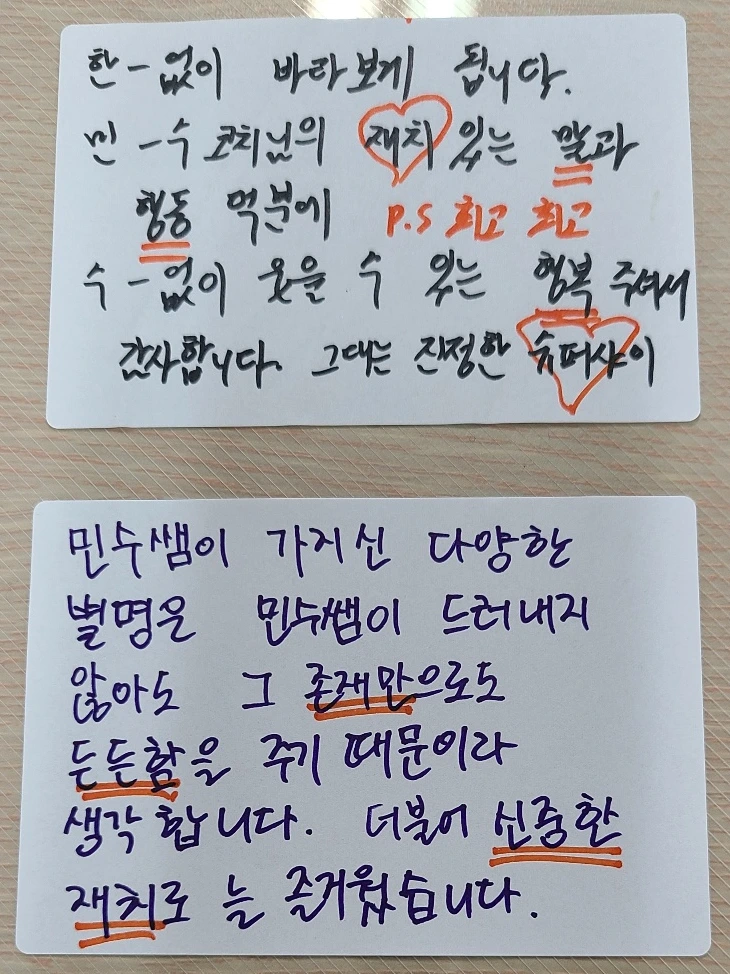 한-없이 바라보게 됩니다.
민-수 코치님의 재치 있는 말과
행동 덕분에 P.S 최고 최고
수-없이 웃을 수 있는 행복 주셔서
감사합니다. 그대는 진정한 슈퍼샤이
민수쌤이 가지신 다양한
별명은 민수쌤이 드러내지
않아도 그 존재만으로도
든든함을 주기 때문이라
생각합니다. 더불어 신중한
재치로 늘 즐거웠습니다.